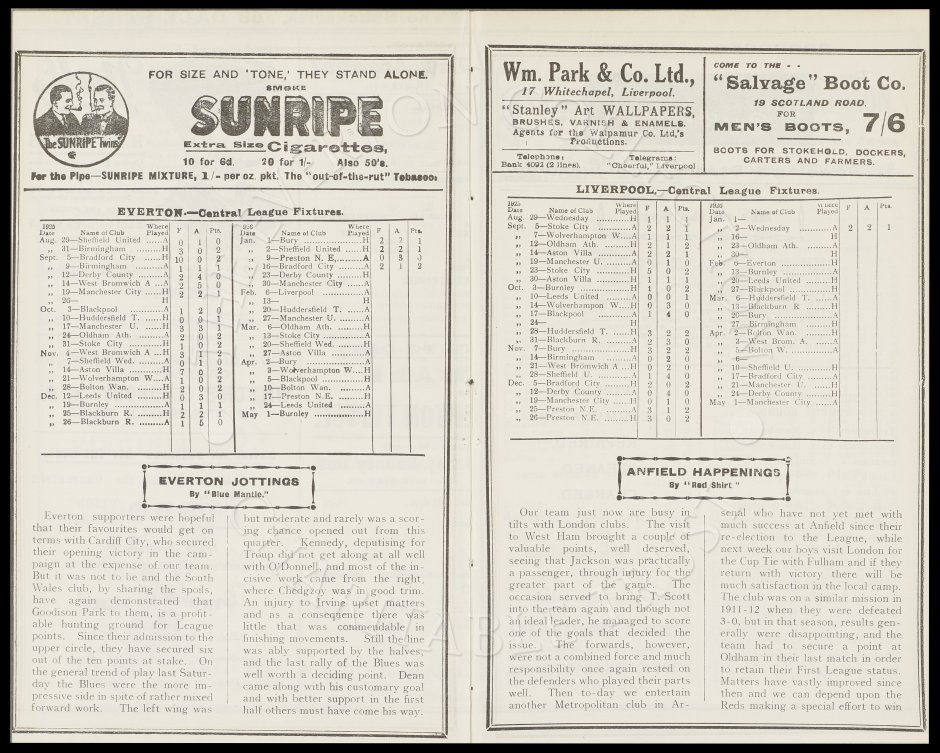 FOR SIZE AND 'TONE,' THEY STAND ALONE.
SMOKE
SUNRIPE
Extra Size Cigarettes,
The "SUNRIPE Twins"
10 for 6d. 20 for 1/- Also 50's.
For the Pipe—SUNRIPE MIXTURE, 1/- per oz. pkt. The "out-of-the-rut" Tobacco.
EVERTON.—Central League Fixtures.
1925 Date Name of Club Where Played F A Pts.
Aug. 29—Sheffield United ......A 0 1 0
„ 31—Birmingham ............H 3 0 2
Sept. 5—Bradford City ......H 10 0 2
„ 9—Birmingham ............A 1 1 1
„ 12—Derby County .........A 2 4 0
„ 14—West Bromwich A ...A 2 5 0
„ 19—Manchester City ......H 2 2 1
„ 26— H
Oct. 3—Blackpool ............A 1 2 0
„ 10—Huddersfield T. ......H 0 0 1
„ 17—Manchester U. .........H 3 3 1
„ 24—Oldham Ath. ............H 2 0 2
„ 31—Stoke City ............H 1 0 2
Nov. 4—West Bromwich A ...H 3 1 2
„ 7—Sheffield Wed. .........A 0 1 0
„ 14—Aston Villa ............H 7 0 2
„ 21—Wolverhampton W....A 1 0 2
„ 28—Bolton Wan. .........H 2 0 2
Dec. 12—Leeds United .........H 0 3 0
„ 19—Burnley ...............A 1 1 1
„ 25—Blackburn R. .........H 2 2 1
„ 26—Blackburn R. .........A 1 5 0
Date Name of Club Where Played F A Pts.
Jan. 1—Bury ..................H 2 2 1
„ 2—Sheffield United ......H 2 2 1
„ 9—Preston N. E..........A 0 3 0
„ 16—Bradford City .........A 2 1 2
„ 23—Derby County .........H
„ 30—Manchester City ......A
Feb. 6—Liverpool ............A
„ 13— H
„ 20—Huddersfield T. ......A
„ 27—Manchester U. .........A
Mar. 6—Oldham Ath. .........H
„ 13—Stoke City ............A
„ 20—Sheffield Wed. .........H
„ 27—Aston Villa ............A
Apr. 2—Bury ..................A
„ 3—Wolverhampton W....H
„ 5—Blackpool ............H
„ 10—Bolton Wan. .........A
„ 17—Preston N.E. .........H
„ 24—Leeds United .........A
May 1—Burnley ...............H
EVERTON JOTTINGS
By "Blue Mantle."
Everton supporters were hopeful
that their favourites would get on
terms with Cardiff City, who secured
their opening victory in the cam-
paign at the expense of our team.
But it was not to be and the South
Wales club, by sharing the spoils,
have again demonstrated that
Goodison Park to them, is a profit-
able hunting ground for League
points. Since their admission to the
upper circle, they have secured six
out of the ten points at stake. On
the general trend of play last Satur-
day the Blues were the more im-
pressive side in spite of rather mixed
forward work. The left wing was
but moderate and rarely was a scor-
ing chance opened out from this
quarter. Kennedy, deputising for
Troup did not get along at all well
with O'Donnell, and most of the in-
cisive work came from the right,
where Chedgzoy was in good trim.
An injury to Irvine upset matters
and as a consequence there was
little that was commendable in
finishing movements. Still the line
was ably supported by the halves,
and the last rally of the Blues was
well worth a deciding point. Dean
came along with his customary goal
and with better support in the first
half others must have come his way.
Wm. Park & Co. Ltd.,
17 Whitechapel, Liverpool.
"Stanley" Art WALLPAPERS,
BRUSHES, VARNISH & ENAMELS.
Agents for the Walpamur Co. Ltd,'s
Productions.
Telephone: Bank 4092 (2 lines).
Telegrams: "Cheerful," Liverpool
COME TO THE - -
"Salvage" Boot Co.
19 SCOTLAND ROAD.
FOR
MEN'S BOOTS, 7/6
BOOTS FOR STOKEHOLD, DOCKERS,
CARTERS AND FARMERS.
LIVERPOOL.—Central League Fixtures.
1925 Date Name of Club Where Played F A Pts.
Aug. 29—Wednesday ............H 1 1 1
Sept. 5—Stoke City ............A 2 2 1
„ 7—Wolverhampton W....A 1 1 1
„ 12—Oldham Ath. .........H 2 1 2
„ 14—Aston Villa ............A 2 2 1
„ 19—Manchester U. .........A 0 1 0
„ 23—Stoke City ............H 5 0 2
„ 30—Aston Villa ............H 1 1 1
Oct. 3—Burnley ...............H 1 0 2
„ 10—Leeds United .........A 0 0 1
„ 14—Wolverhampton W....H 0 3 0
„ 17—Blackpool ............A 1 4 0
„ 24— H
„ 28—Huddersfield T. ......H 3 2 2
„ 31—Blackburn R. .........A 2 3 0
Nov. 7—Bury ..................H 3 2 2
„ 14—Birmingham ............H 0 2 0
„ 21—West Bromwich A ...H 0 2 0
„ 28—Sheffield U. ............A 1 4 0
Dec. 5—Bradford City .........H 2 0 2
„ 12—Derby County .........A 0 4 0
„ 19—Manchester City ......H 0 1 0
„ 25—Preston N.E. .........A 3 1 2
„ 26—Preston N.E. .........H 3 0 2
Date Name of Club Where Played F A Pts.
Jan. 1—
„ 2—Wednesday ............A 2 2 1
„ 16— H
„ 23—Oldham Ath. .........A
„ 30— H
Feb. 6—Everton ...............H
„ 13—Burnley ...............A
„ 20—Leeds United .........H
„ 27—Blackpool ............H
Mar. 6—Huddersfield T. ......A
„ 13—Blackburn R. .........H
„ 20—Bury ..................A
„ 27—Birmingham ............H
Apr. 2—Bolton Wan. .........H
„ 3—West Brom. A. ......A
„ 5—Bolton W. ............A
„ 6—
„ 10—Sheffield U. ............H
„ 17—Bradford City .........A
„ 21—Manchester U. .........H
„ 24—Derby County .........H
May 1—Manchester City ......A
ANFIELD HAPPENINGS
By "Red Shirt"
Our team just now are busy in
tilts with London clubs. The visit
to West Ham brought a couple of
valuable points, well deserved,
seeing that Jackson was practically
a passenger, through injury for the
greater part of the game. The
occasion served to bring T. Scott
into the team again and though not
an ideal leader, he managed to score
one of the goals that decided the
issue. The forwards, however,
were not a combined force and much
responsibility once again rested on
the defenders who played their parts
well. Then to-day we entertain
another Metropolitan club in Ar-
senal who have not yet met with
much success at Anfield since their
re-election to the League, while
next week our boys visit London for
the Cup Tie with Fulham and if they
return with victory there will be
much satisfaction in the local camp.
The club was on a similar mission in
1911-12 when they were defeated
3-0, but in that season, results gen-
erally were disappointing, and the
team had to secure a point at
Oldham in their last match in order
to retain their First League status.
Matters have vastly improved since
then and we can depend upon the
Reds making a special effort to win